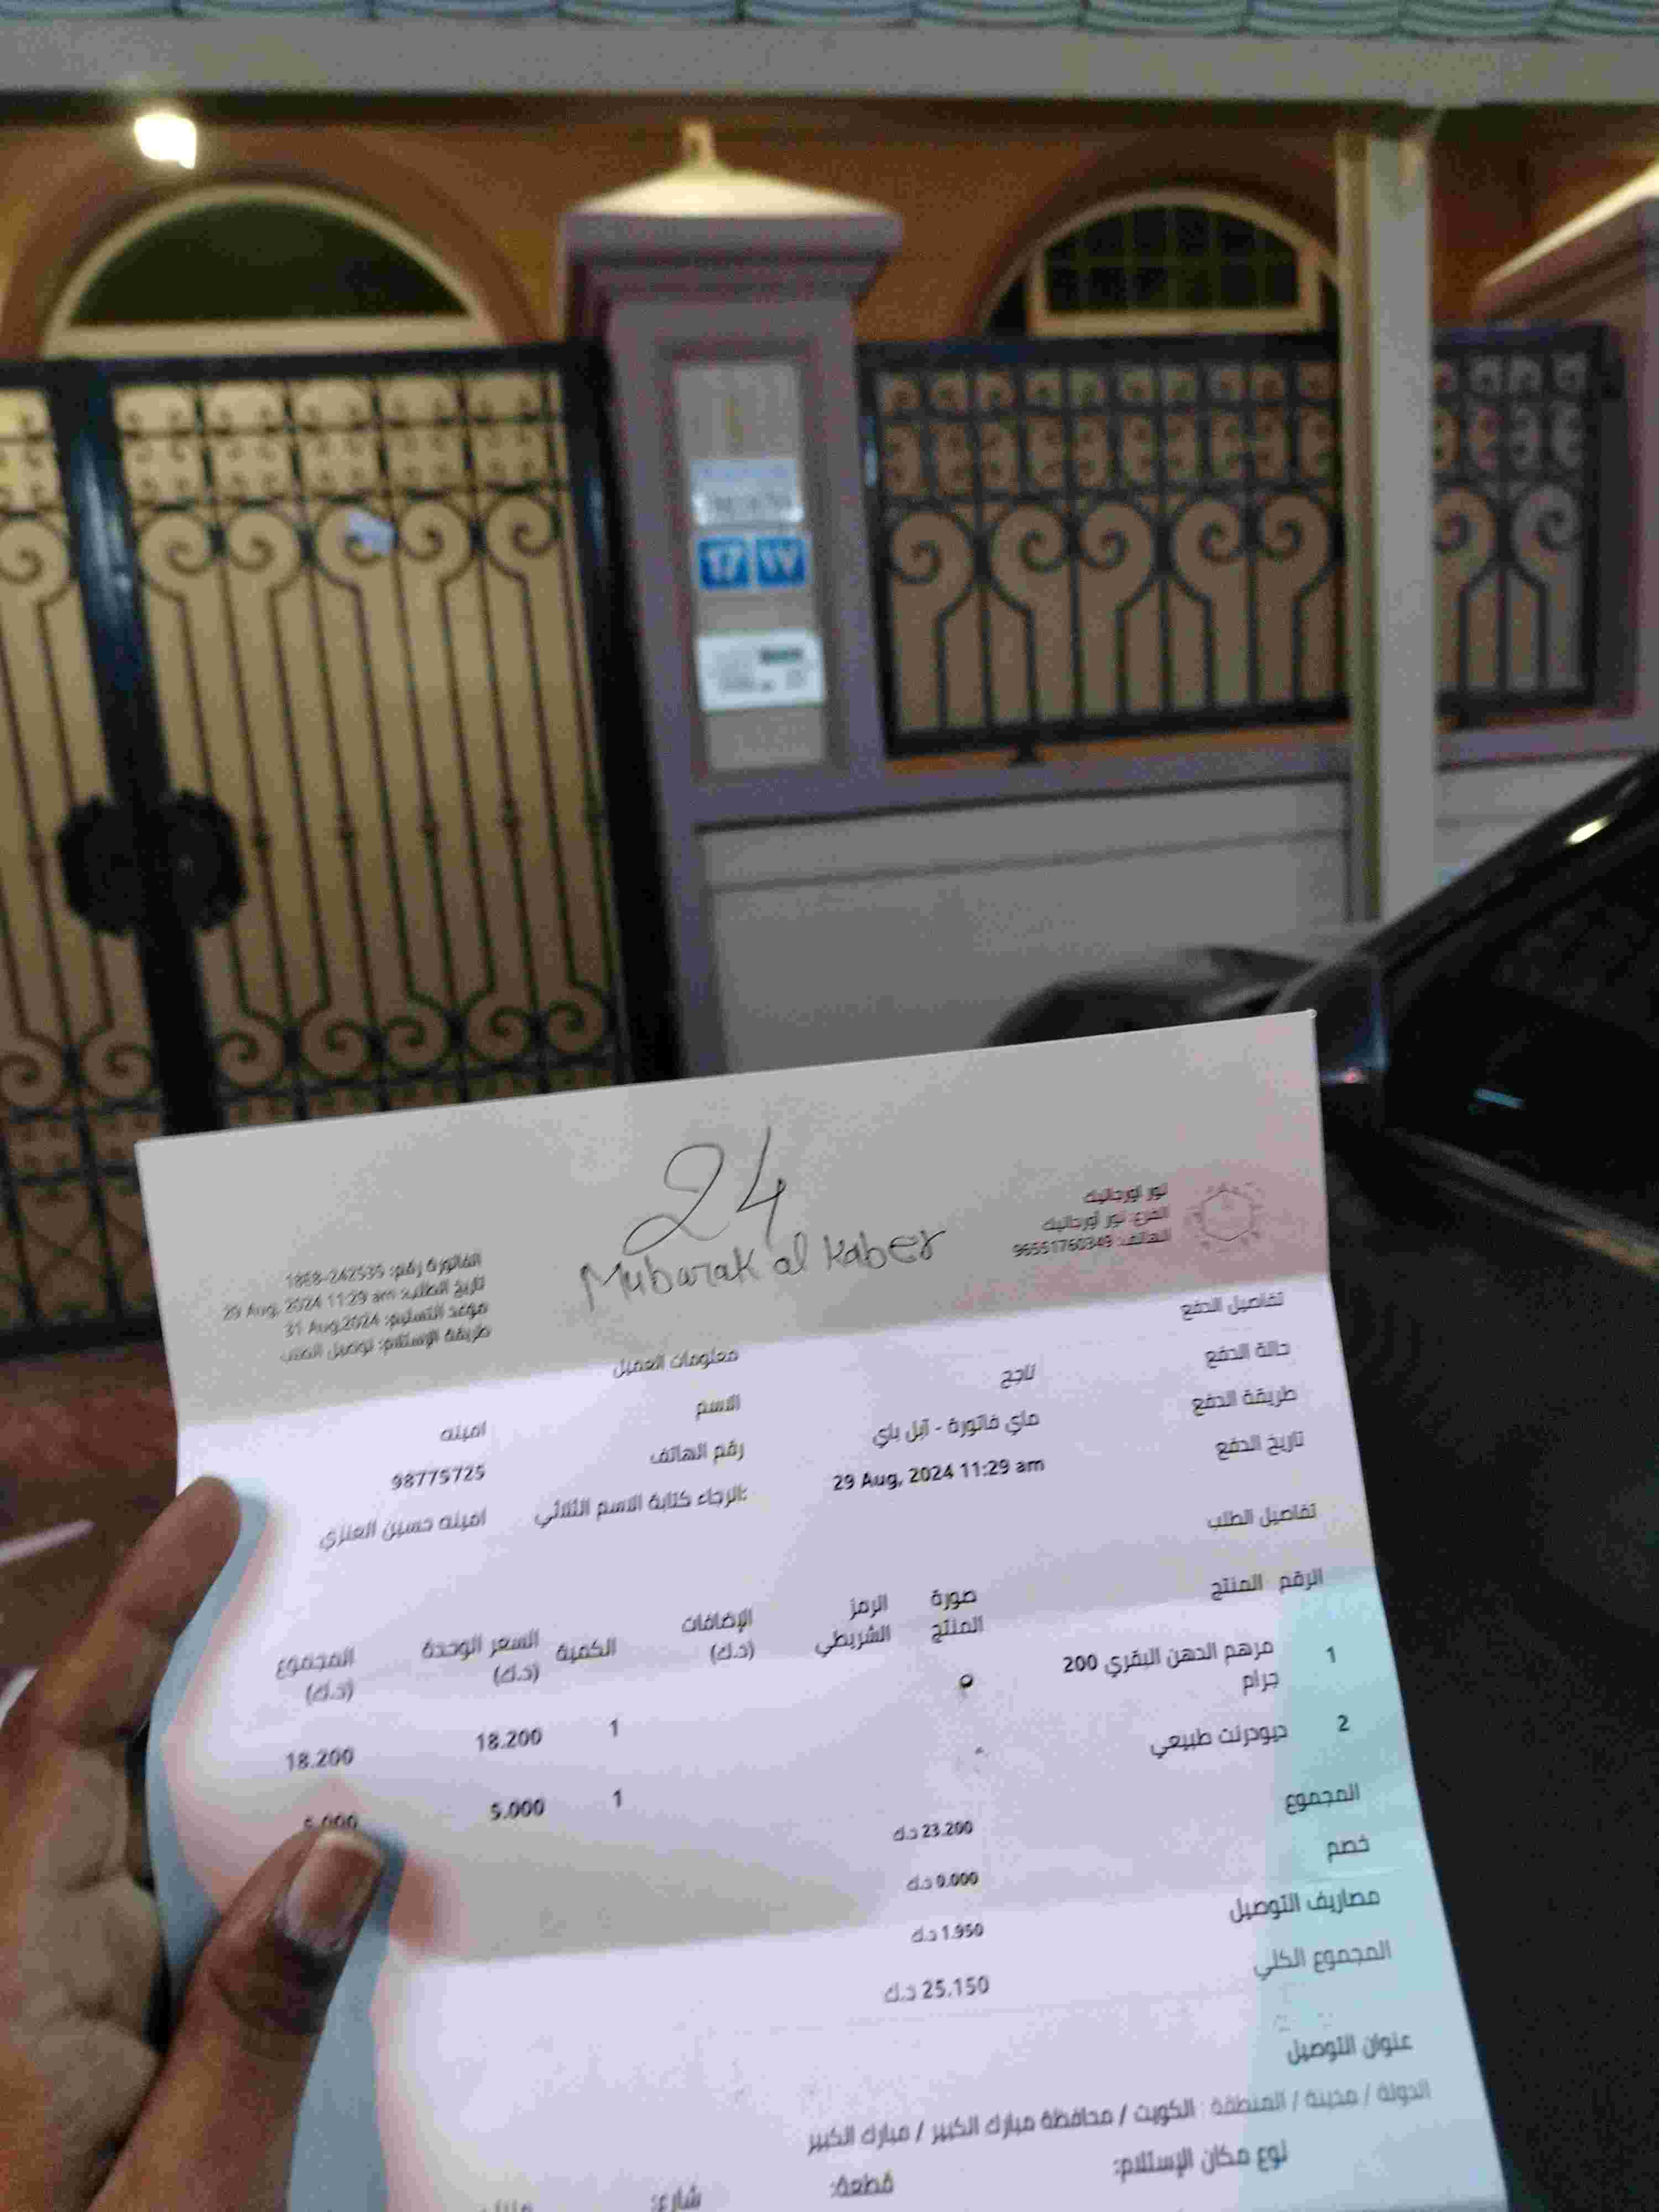 17 ١٧
24
Mubarak al Kaber
نور اورجانيك
الفرع: نور اورجانيك
الهاتف: 96551760349
الفاتورة رقم: 1868-242535
تاريخ الطلب: 29 Aug, 2024 11:29 am
موعد التسليم: 31 Aug,2024
طريقة الإستلام: توصيل الطلب
تفاصيل الدفع
حالة الدفع ناجح
طريقة الدفع ماي فاتورة - آبل باي
تاريخ الدفع 29 Aug, 2024 11:29 am
معلومات العميل
الاسم امينه
رقم الهاتف 98775725
الرجاء كتابة الاسم الثلاثي: امينه حسين العنزي
تفاصيل الطلب
الرقم المنتج صورة المنتج الرمز الشريطي الإضافات (د.ك) الكمية السعر الوحدة (د.ك) المجموع (د.ك)
1 مرهم الدهن البقري 200 جرام 1 18.200 18.200
2 ديودرنت طبيعي 1 5.000 5.000
المجموع 23.200 د.ك
خصم 0.000 د.ك
مصاريف التوصيل 1.950 د.ك
المجموع الكلي 25.150 د.ك
عنوان التوصيل
الدولة / مدينة / المنطقة : الكويت / محافظة مبارك الكبير / مبارك الكبير
نوع مكان الإستلام: قطعة: شارع: